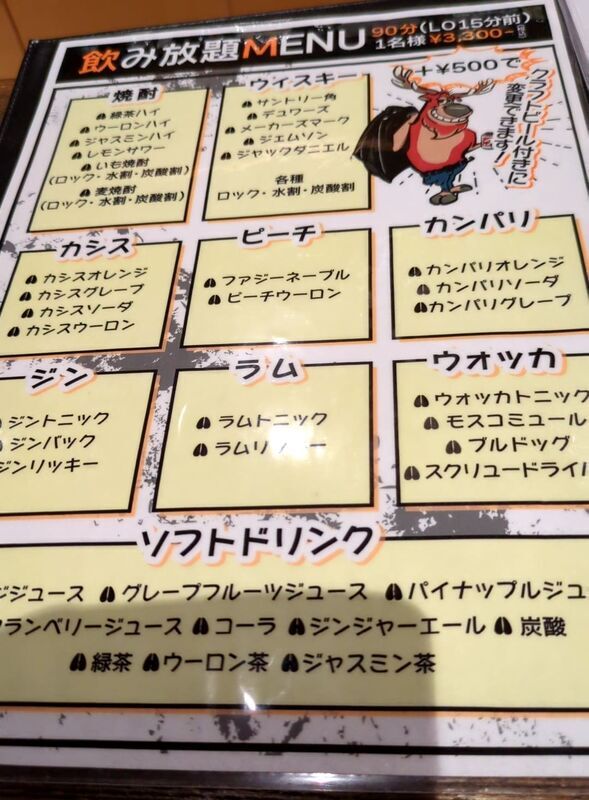 飲み放題MENU 90分(LO15分前)
1名様 ¥3,300~
+¥500で
クラフトビール付きに
変更できます!
焼酎
緑茶ハイ
ウーロンハイ
ジャスミンハイ
レモンサワー
いも焼酎
(ロック・水割・炭酸割)
麦焼酎
(ロック・水割・炭酸割)
ウィスキー
サントリー角
デュワーズ
メーカーズマーク
ジェムソン
ジャックダニエル
各種
ロック・水割・炭酸割
カシス
カシスオレンジ
カシスグレープ
カシスソーダ
カシスウーロン
ピーチ
ファジーネーブル
ピーチウーロン
カンパリ
カンパリオレンジ
カンパリソーダ
カンパリグレープ
ジン
ジントニック
ジンバック
ジンリッキー
ラム
ラムトニック
ウォッカ
ウォッカトニック
モスコミュール
ブルドッグ
スクリュードライバ
ソフトドリンク
ジジュース グレープフルーツジュース パイナップルジュ
クランベリージュース コーラ ジンジャーエール 炭酸
緑茶 ウーロン茶 ジャスミン茶